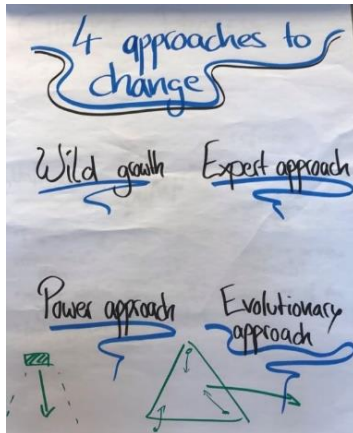 4 approaches to
change
Wild growth
Expert approach
Power approach
Evolutionary
approach